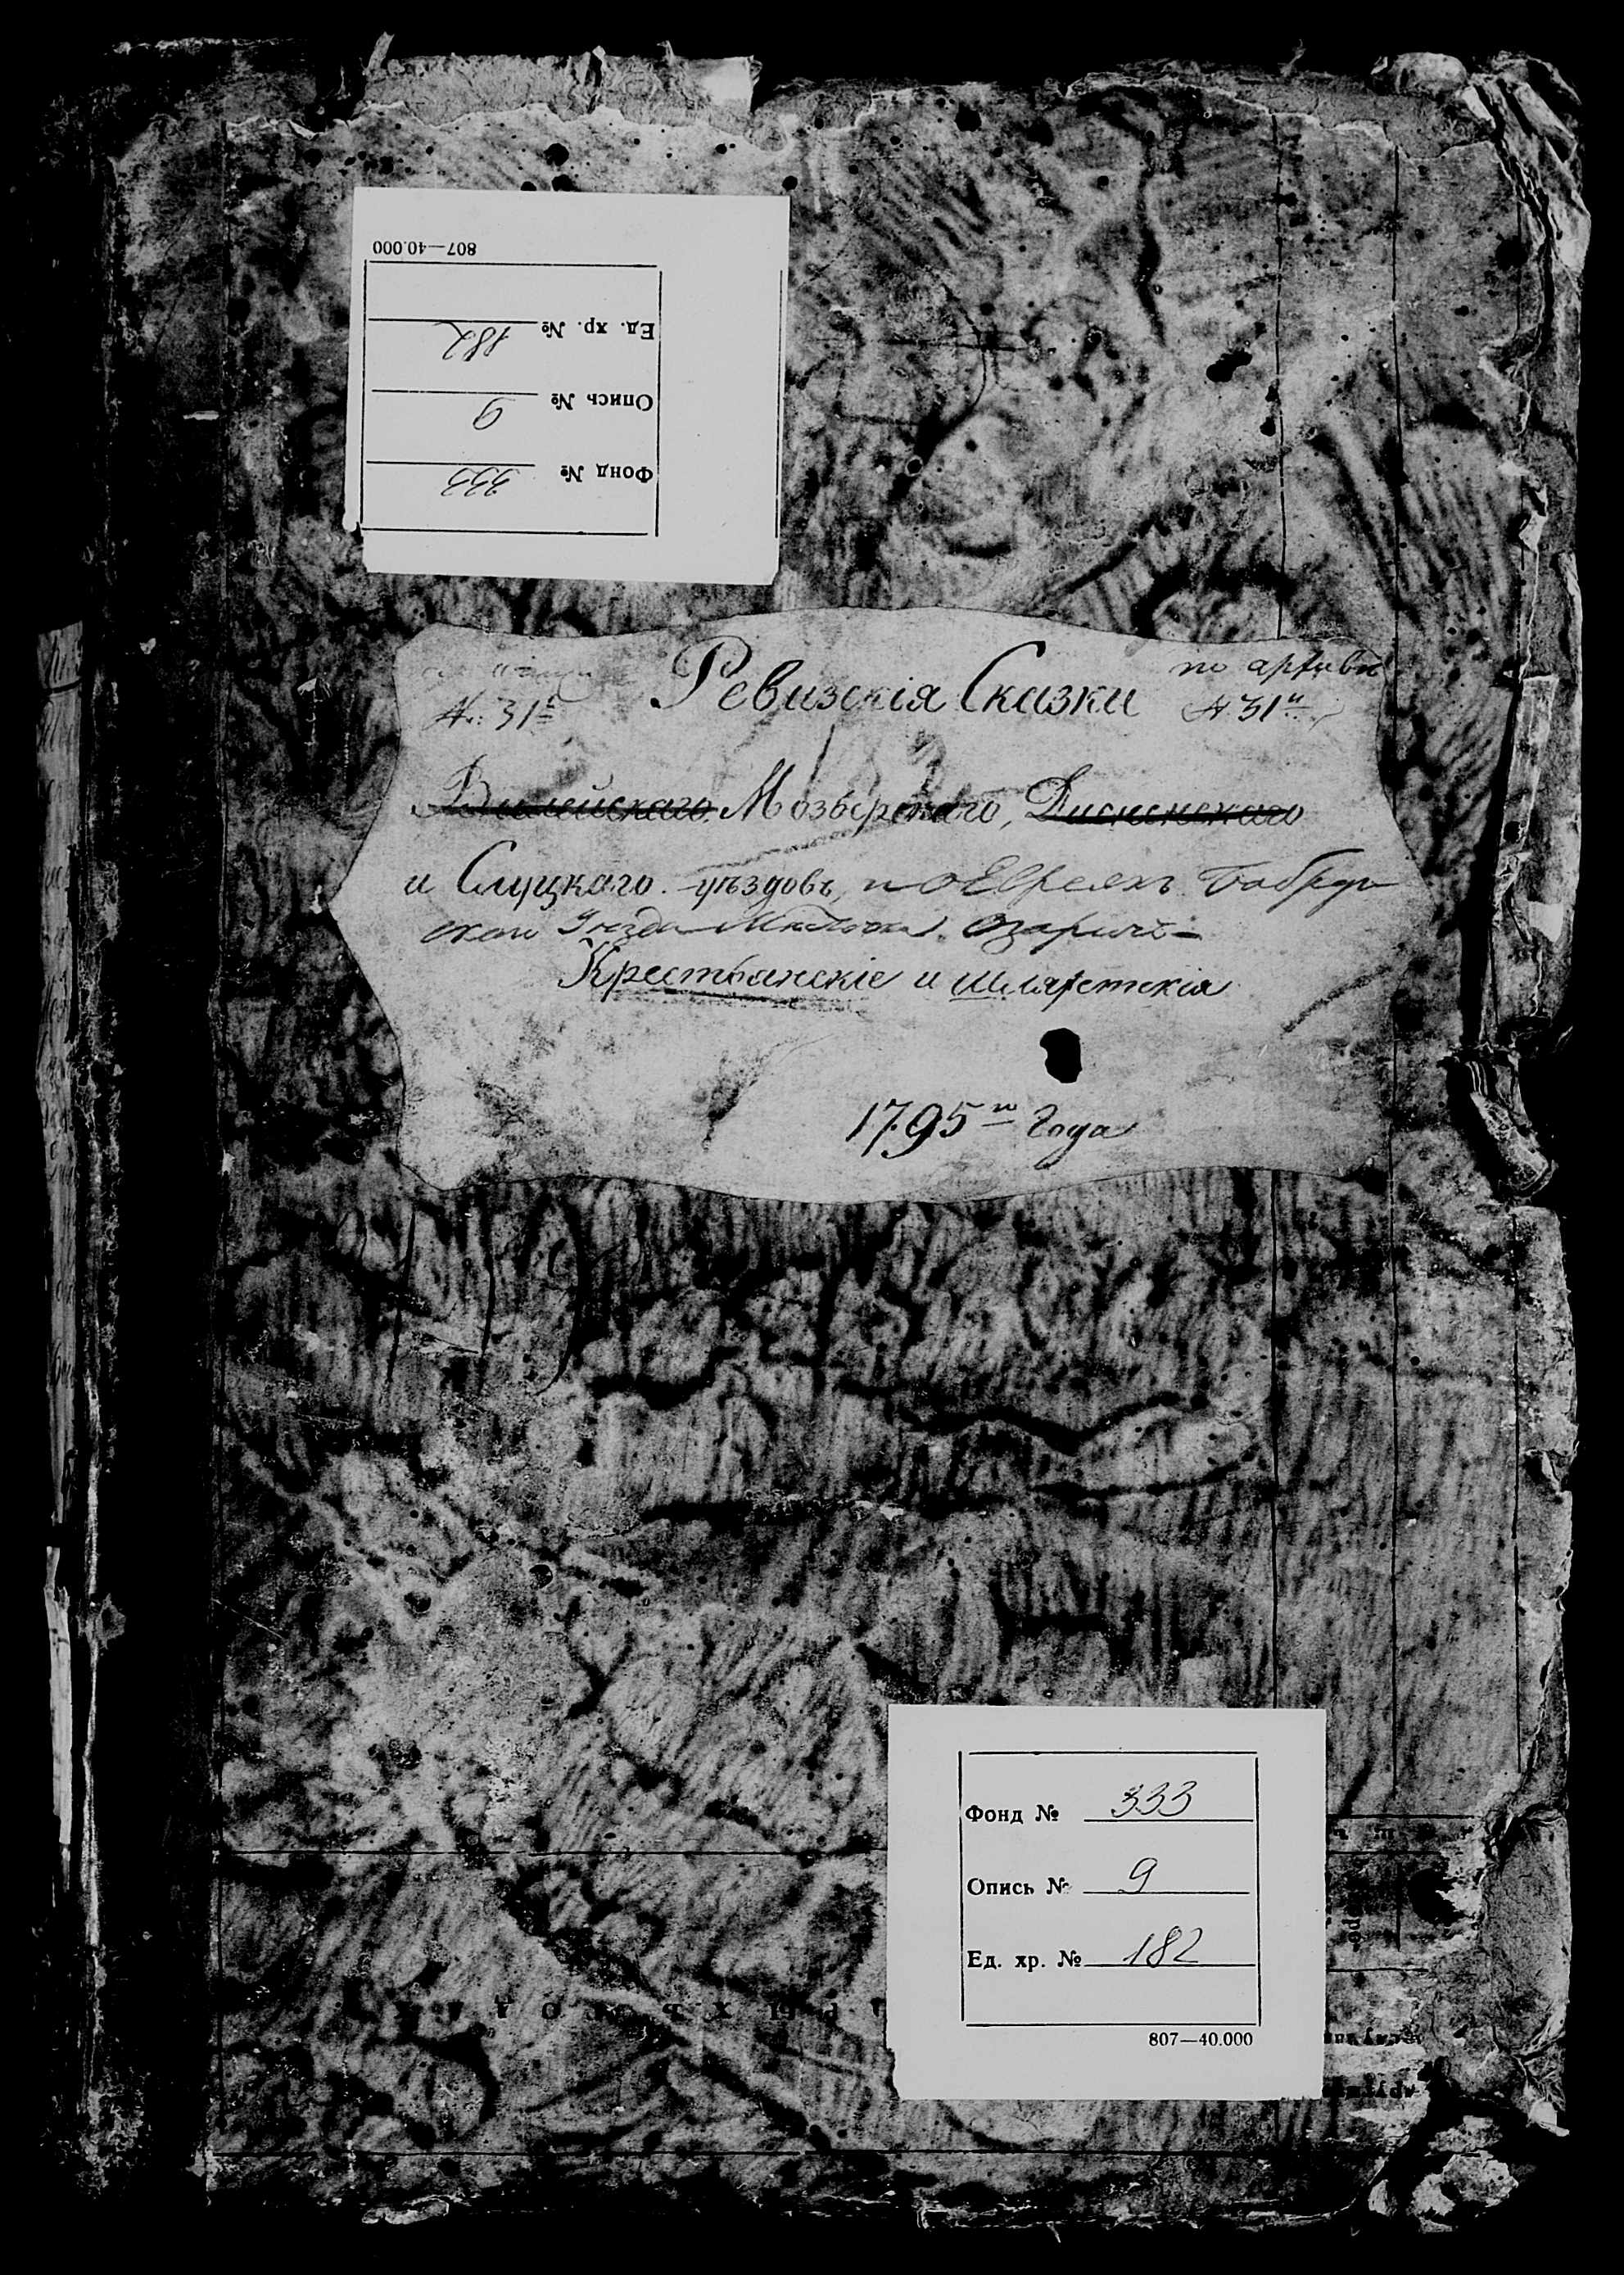 807—40.000
Ед. хр. № 182
Опись № 9
Фонд № 333
по архиву
№ 31й
Ревизскія Сказки
№: 31й
Вилейскаго Мозырскаго, Дисненскаго
и Слуцкаго уѣздовъ, и о Евреяхъ Бобруй
ской уезда Местечка Озаричъ
Крестьянскіе и шляхетскія
1795го Года
Фонд № 333
Опись № 9
Ед. хр. № 182
807—40.000